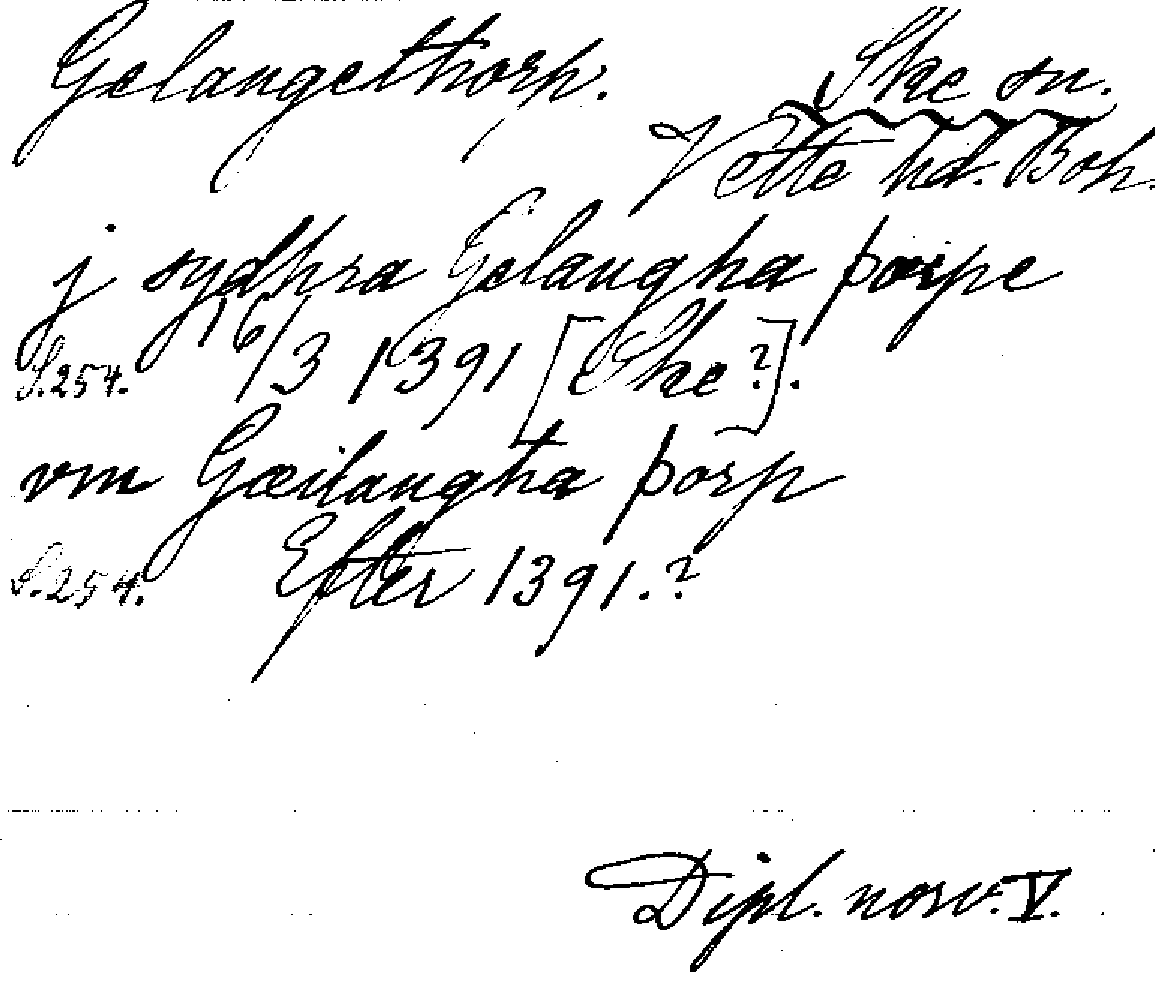 Gelangethorp. Ske sn.
Vette hd. Boh.
j sydhra Gelaugha þorpe
S.254. 16/3 1391 [Ske?].
vm Gæilaugha þorp
S.254. Efter 1391.?
Dipl. norv. V.